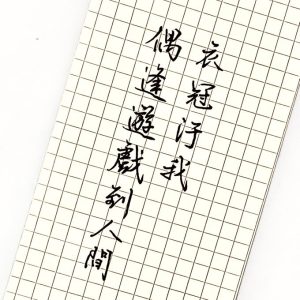 衣冠汙我
偶逢遊戲到人間